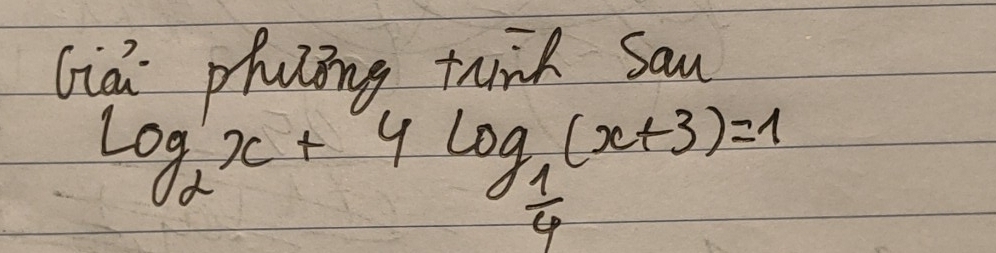 Giải phường trình Sau
Log₂ x + 4 log_{1/4} (x+3)=1